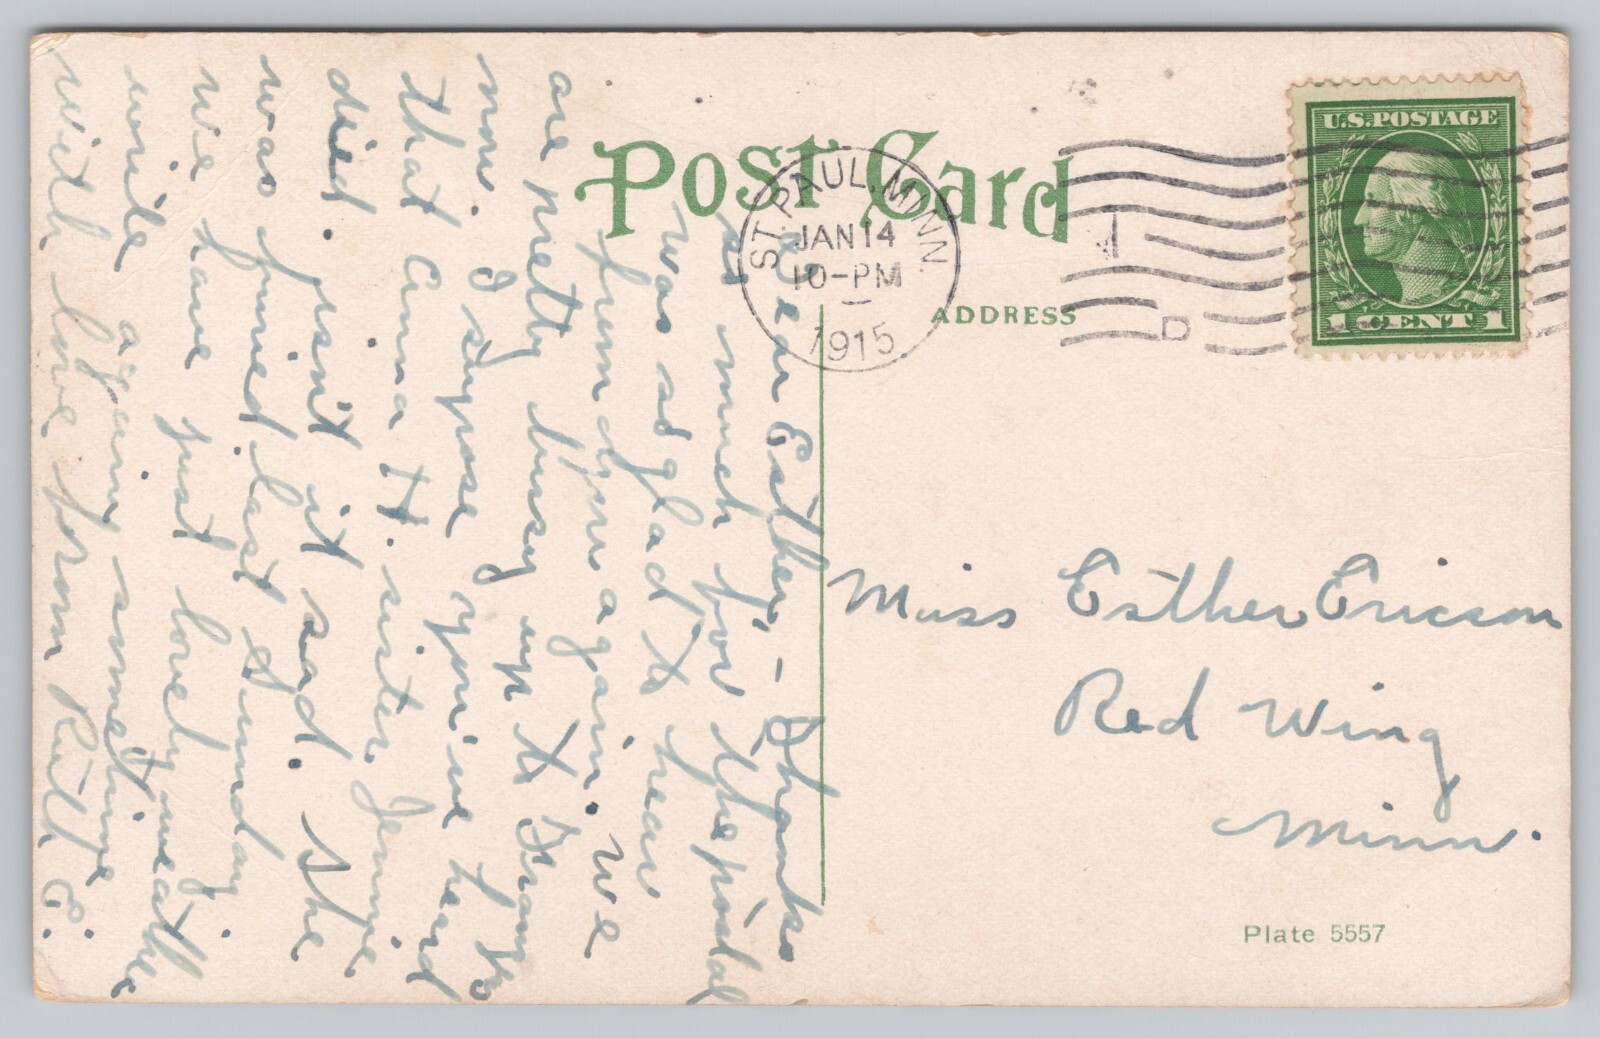 Post Card
ST. PAUL, MINN.
JAN 14
10-PM
1915
D
U.S. POSTAGE
1 CENT 1
ADDRESS
Dear Esther, - Thanks
so much for the postal
was so glad to hear
from you again. We
are pretty busy up to
now. I supose you've heard
that Anna H. sister Jennie
died. isn't it sad. She
was buried last Sunday.
We have just lovely weather
write again sometime
With love from Ruth E.
Miss Esther Ericson
Red Wing
Minn.
Plate 5557